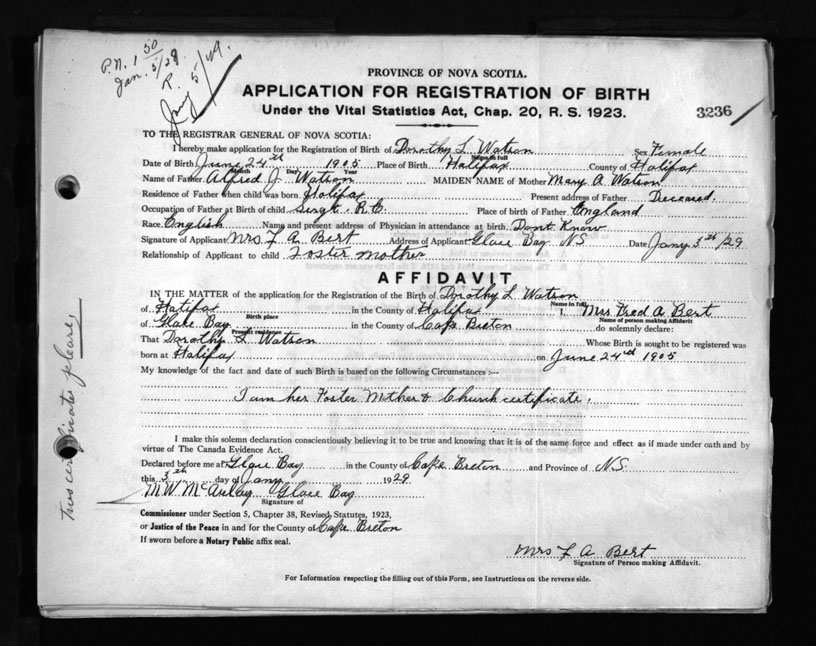 P.N. 1 50
Jan. 5/29.
T.
Jany 5/49.
PROVINCE OF NOVA SCOTIA.
APPLICATION FOR REGISTRATION OF BIRTH
Under the Vital Statistics Act, Chap. 20, R. S. 1923.
3236
TO THE REGISTRAR GENERAL OF NOVA SCOTIA:
I hereby make application for the Registration of Birth of Dorothy L Watson Sex Female
Name in full
Date of Birth June 24th 1905 Place of Birth Halifax County of Halifax
Month Day Year
Name of Father Alfred J Watson MAIDEN NAME of Mother Mary A Watson
Residence of Father when child was born Halifax Present address of Father Deceased.
Occupation of Father at Birth of child Sergt. R.E. Place of birth of Father England
Race English Name and present address of Physician in attendance at birth Dont Know
Signature of Applicant Mrs F A Bert Address of Applicant Glace Bay NS Date Jany 5th /29
Relationship of Applicant to child Foster Mother
AFFIDAVIT
IN THE MATTER of the application for the Registration of the Birth of Dorothy L Watson
Name in full
of Halifax in the County of Halifax I, Mrs Fred A Bert
Birth place Name of person making Affidavit
of Glace Bay in the County of Cape Breton do solemnly declare:
Present residence
That Dorothy L Watson Whose Birth is sought to be registered was
born at Halifax on June 24th 1905
My knowledge of the fact and date of such Birth is based on the following Circumstances :—
I am her Foster Mother & Church certificate.
I make this solemn declaration conscientiously believing it to be true and knowing that it is of the same force and effect as if made under oath and by
virtue of The Canada Evidence Act.
Declared before me at Glace Bay in the County of Cape Breton and Province of N.S.
this 5th day of Jany 1929
M.W. McAulay Glace Bay
Signature of
Commissioner under Section 5, Chapter 38, Revised Statutes, 1923,
or Justice of the Peace in and for the County of Cape Breton
If sworn before a Notary Public affix seal.
Mrs F A Bert
Signature of Person making Affidavit.
For Information respecting the filling out of this Form, see Instructions on the reverse side.
certificate please,